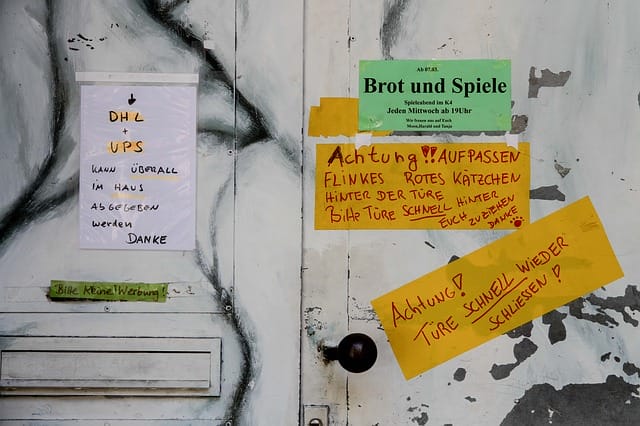 DHL
+
UPS
KANN ÜBERALL
IM HAUS
ABGEGEBEN
werden
DANKE
Bitte Keine! Werbung!
Ab 07.03.
Brot und Spiele
Spieleabend im K4
Jeden Mittwoch ab 19Uhr
Wir freuen uns auf Euch
Moon,Harald und Tanja
Achtung!! AUFPASSEN
FLINKES ROTES KÄTZCHEN
HINTER DER TÜRE
Bitte TÜRE SCHNELL HINTER
EUCH ZUZIEHEN
DANKE
ACHTUNG!
TÜRE SCHNELL WIEDER
SCHLIESSEN!